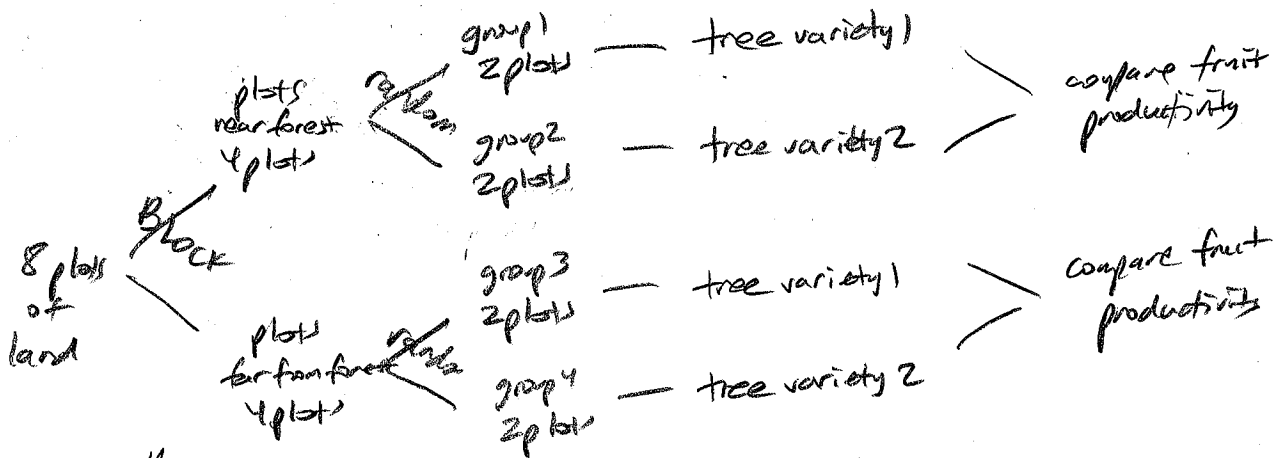 8 plots
of
land
BLOCK
plots
near forest
4 plots
random
group 1
2 plots
tree variety 1
group 2
2 plots
tree variety 2
compare fruit
productivity
plots
far from forest
4 plots
group 3
2 plots
tree variety 1
group 4
2 plots
tree variety 2
compare fruit
productivity